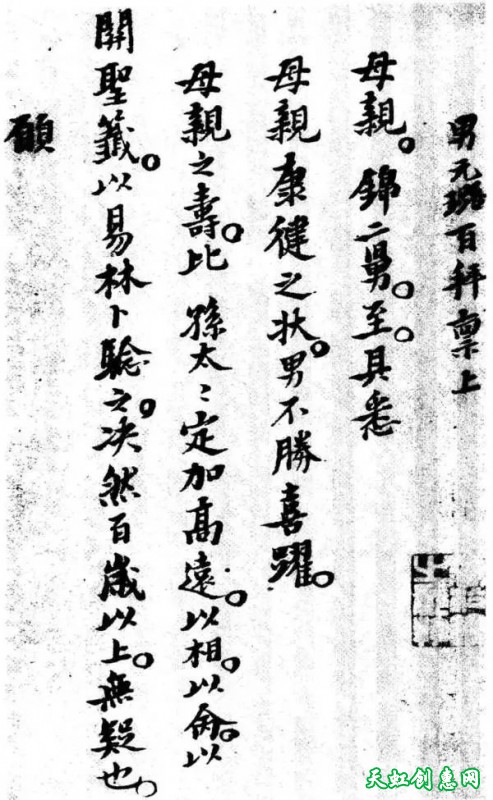 男元璐百拜稟上
母親。錦二舅。至。具悉
母親康健之狀。男不勝喜躍。
母親之壽。比 孫太〻定加高遠。以相。以命。以
關聖籤。以易林卜驗之。決然百歲以上。無疑也。
願
天虹创惠网